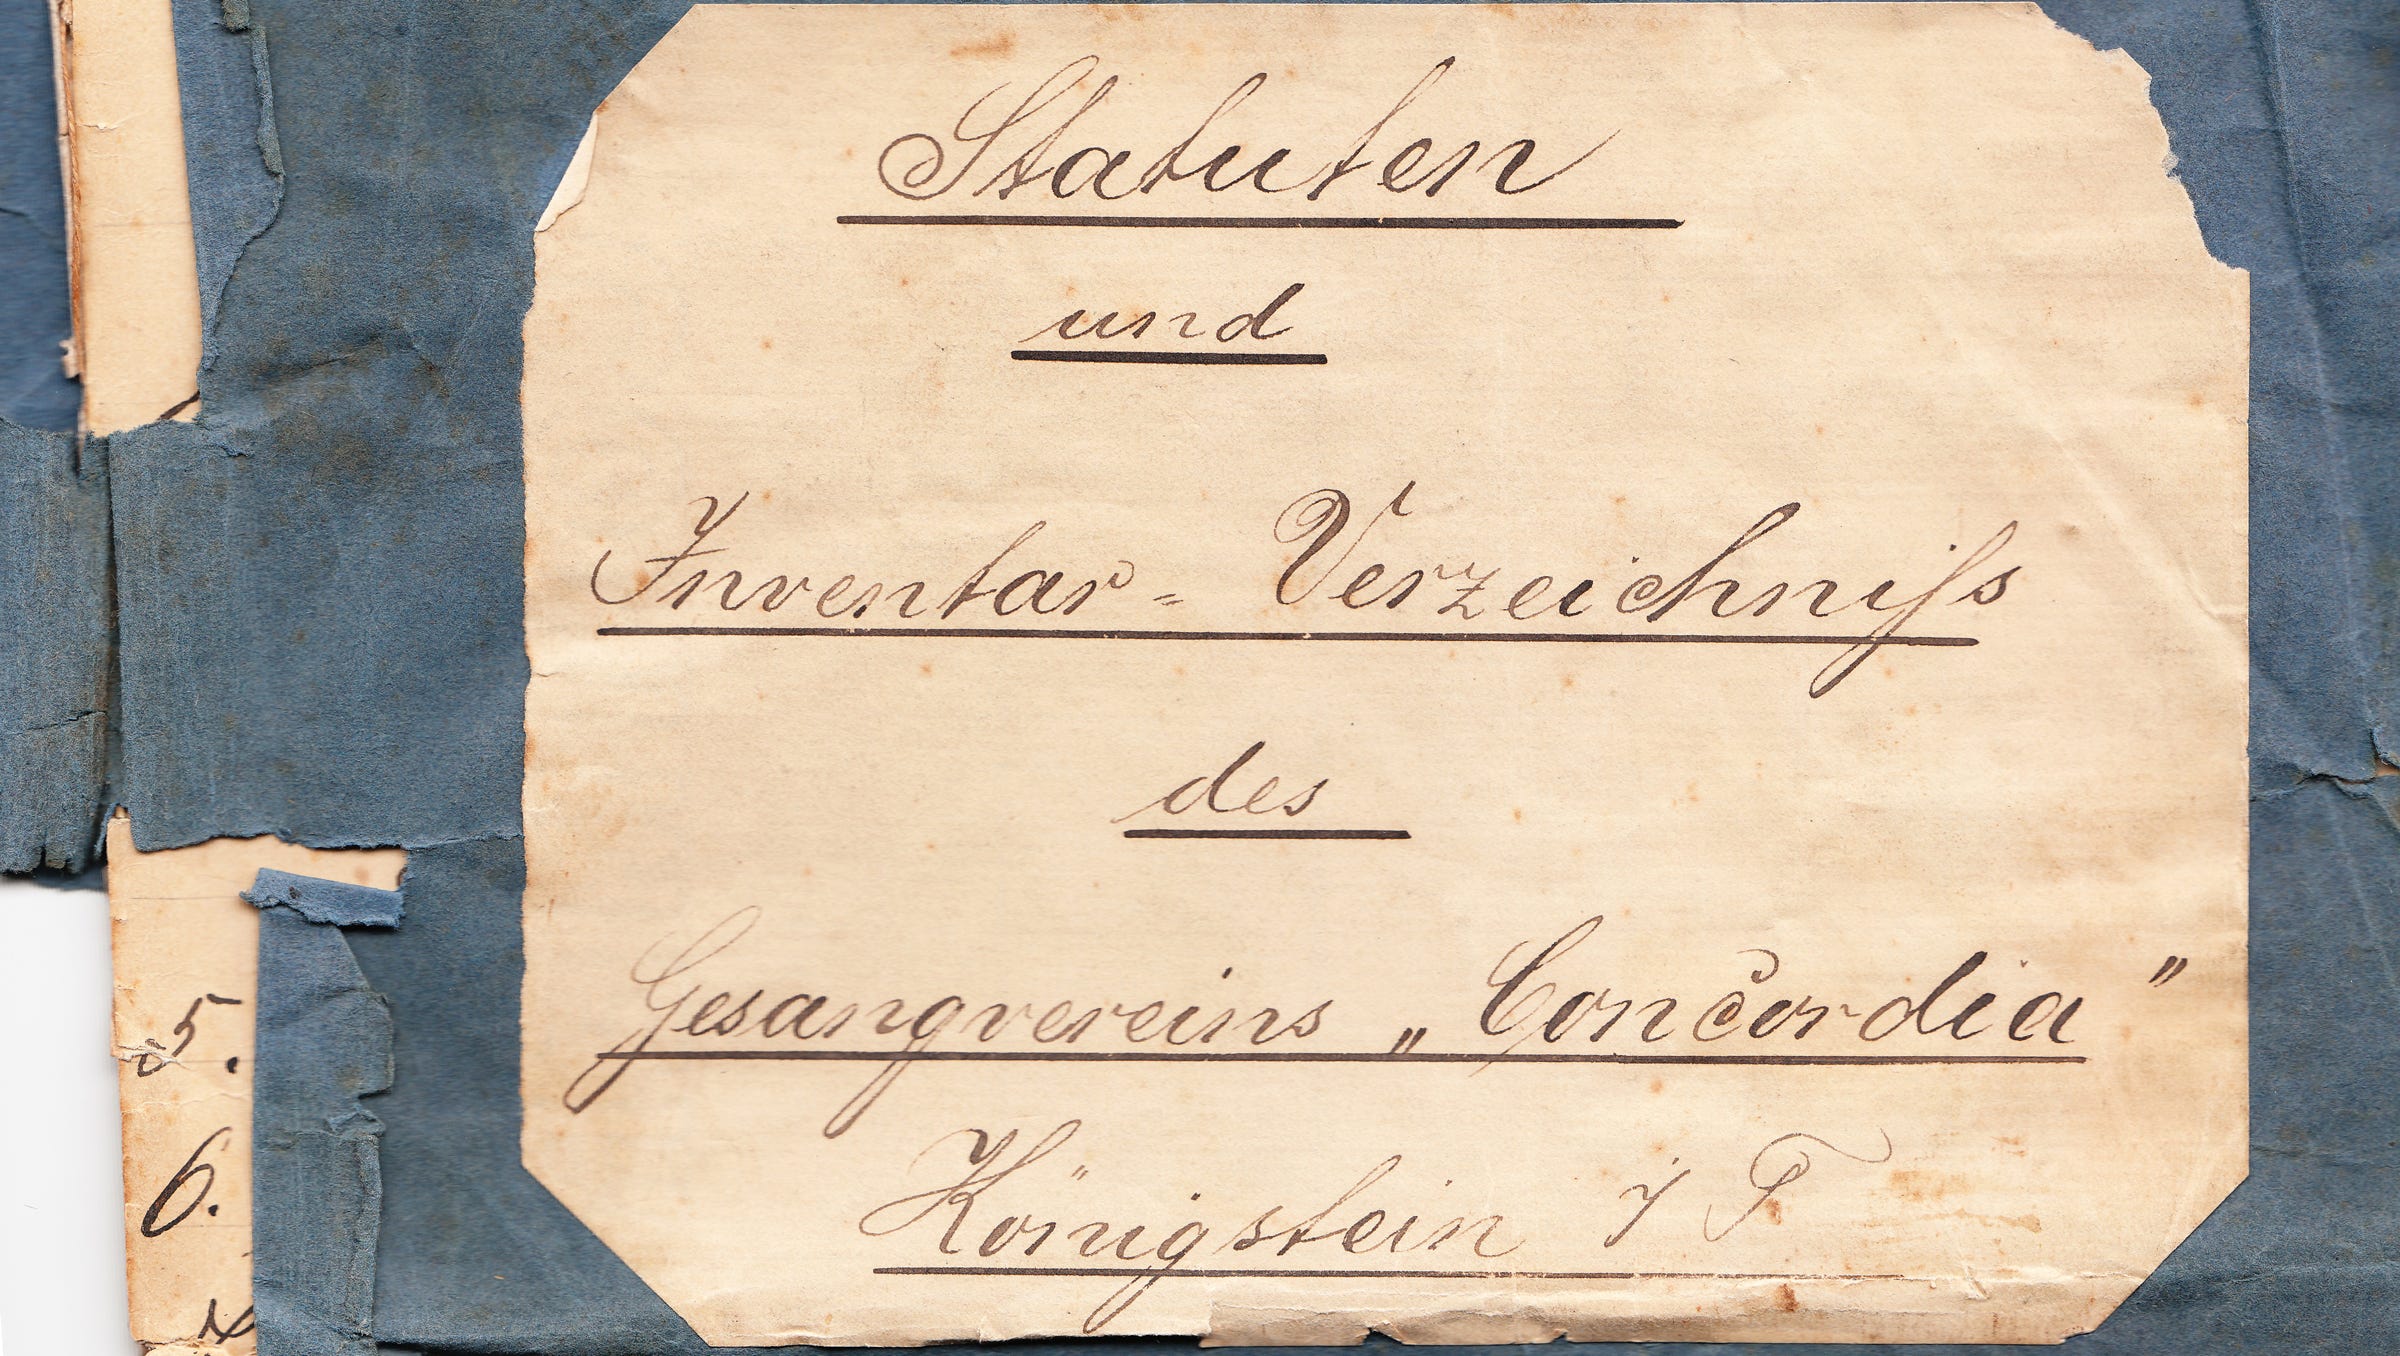 Statuten
und
Inventar = Verzeichniſs
des
Gesangvereins „Concordia"
Königstein i/T
5.
6.